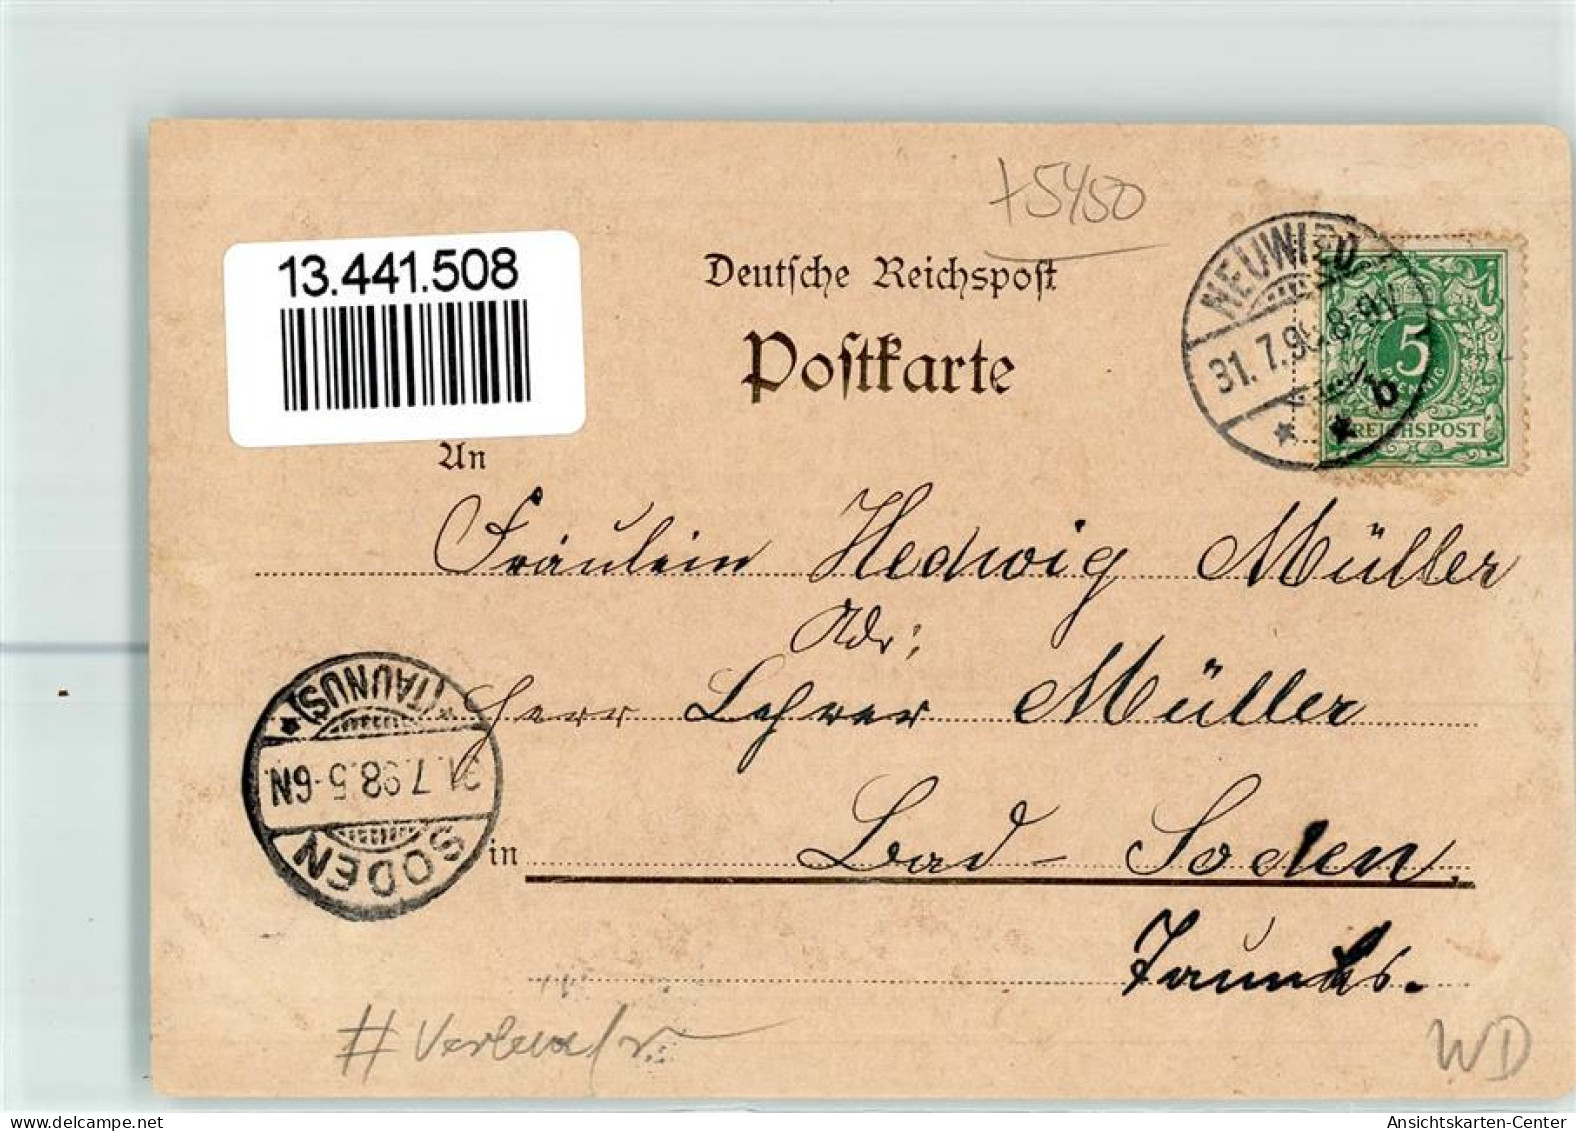 +5450
13.441.508
Deutsche Reichspost
Postkarte
NEUWIED
31.7.98.8-9V
b
5
PFENNIG
REICHSPOST
An
Fräulein Hedwig Müller
Adr:
Herr Lehrer Müller
in Bad-Soden,
Taunus.
SODEN
31.7.98.5-6N
*(TAUNUS)*
WD
Ansichtskarten-Center